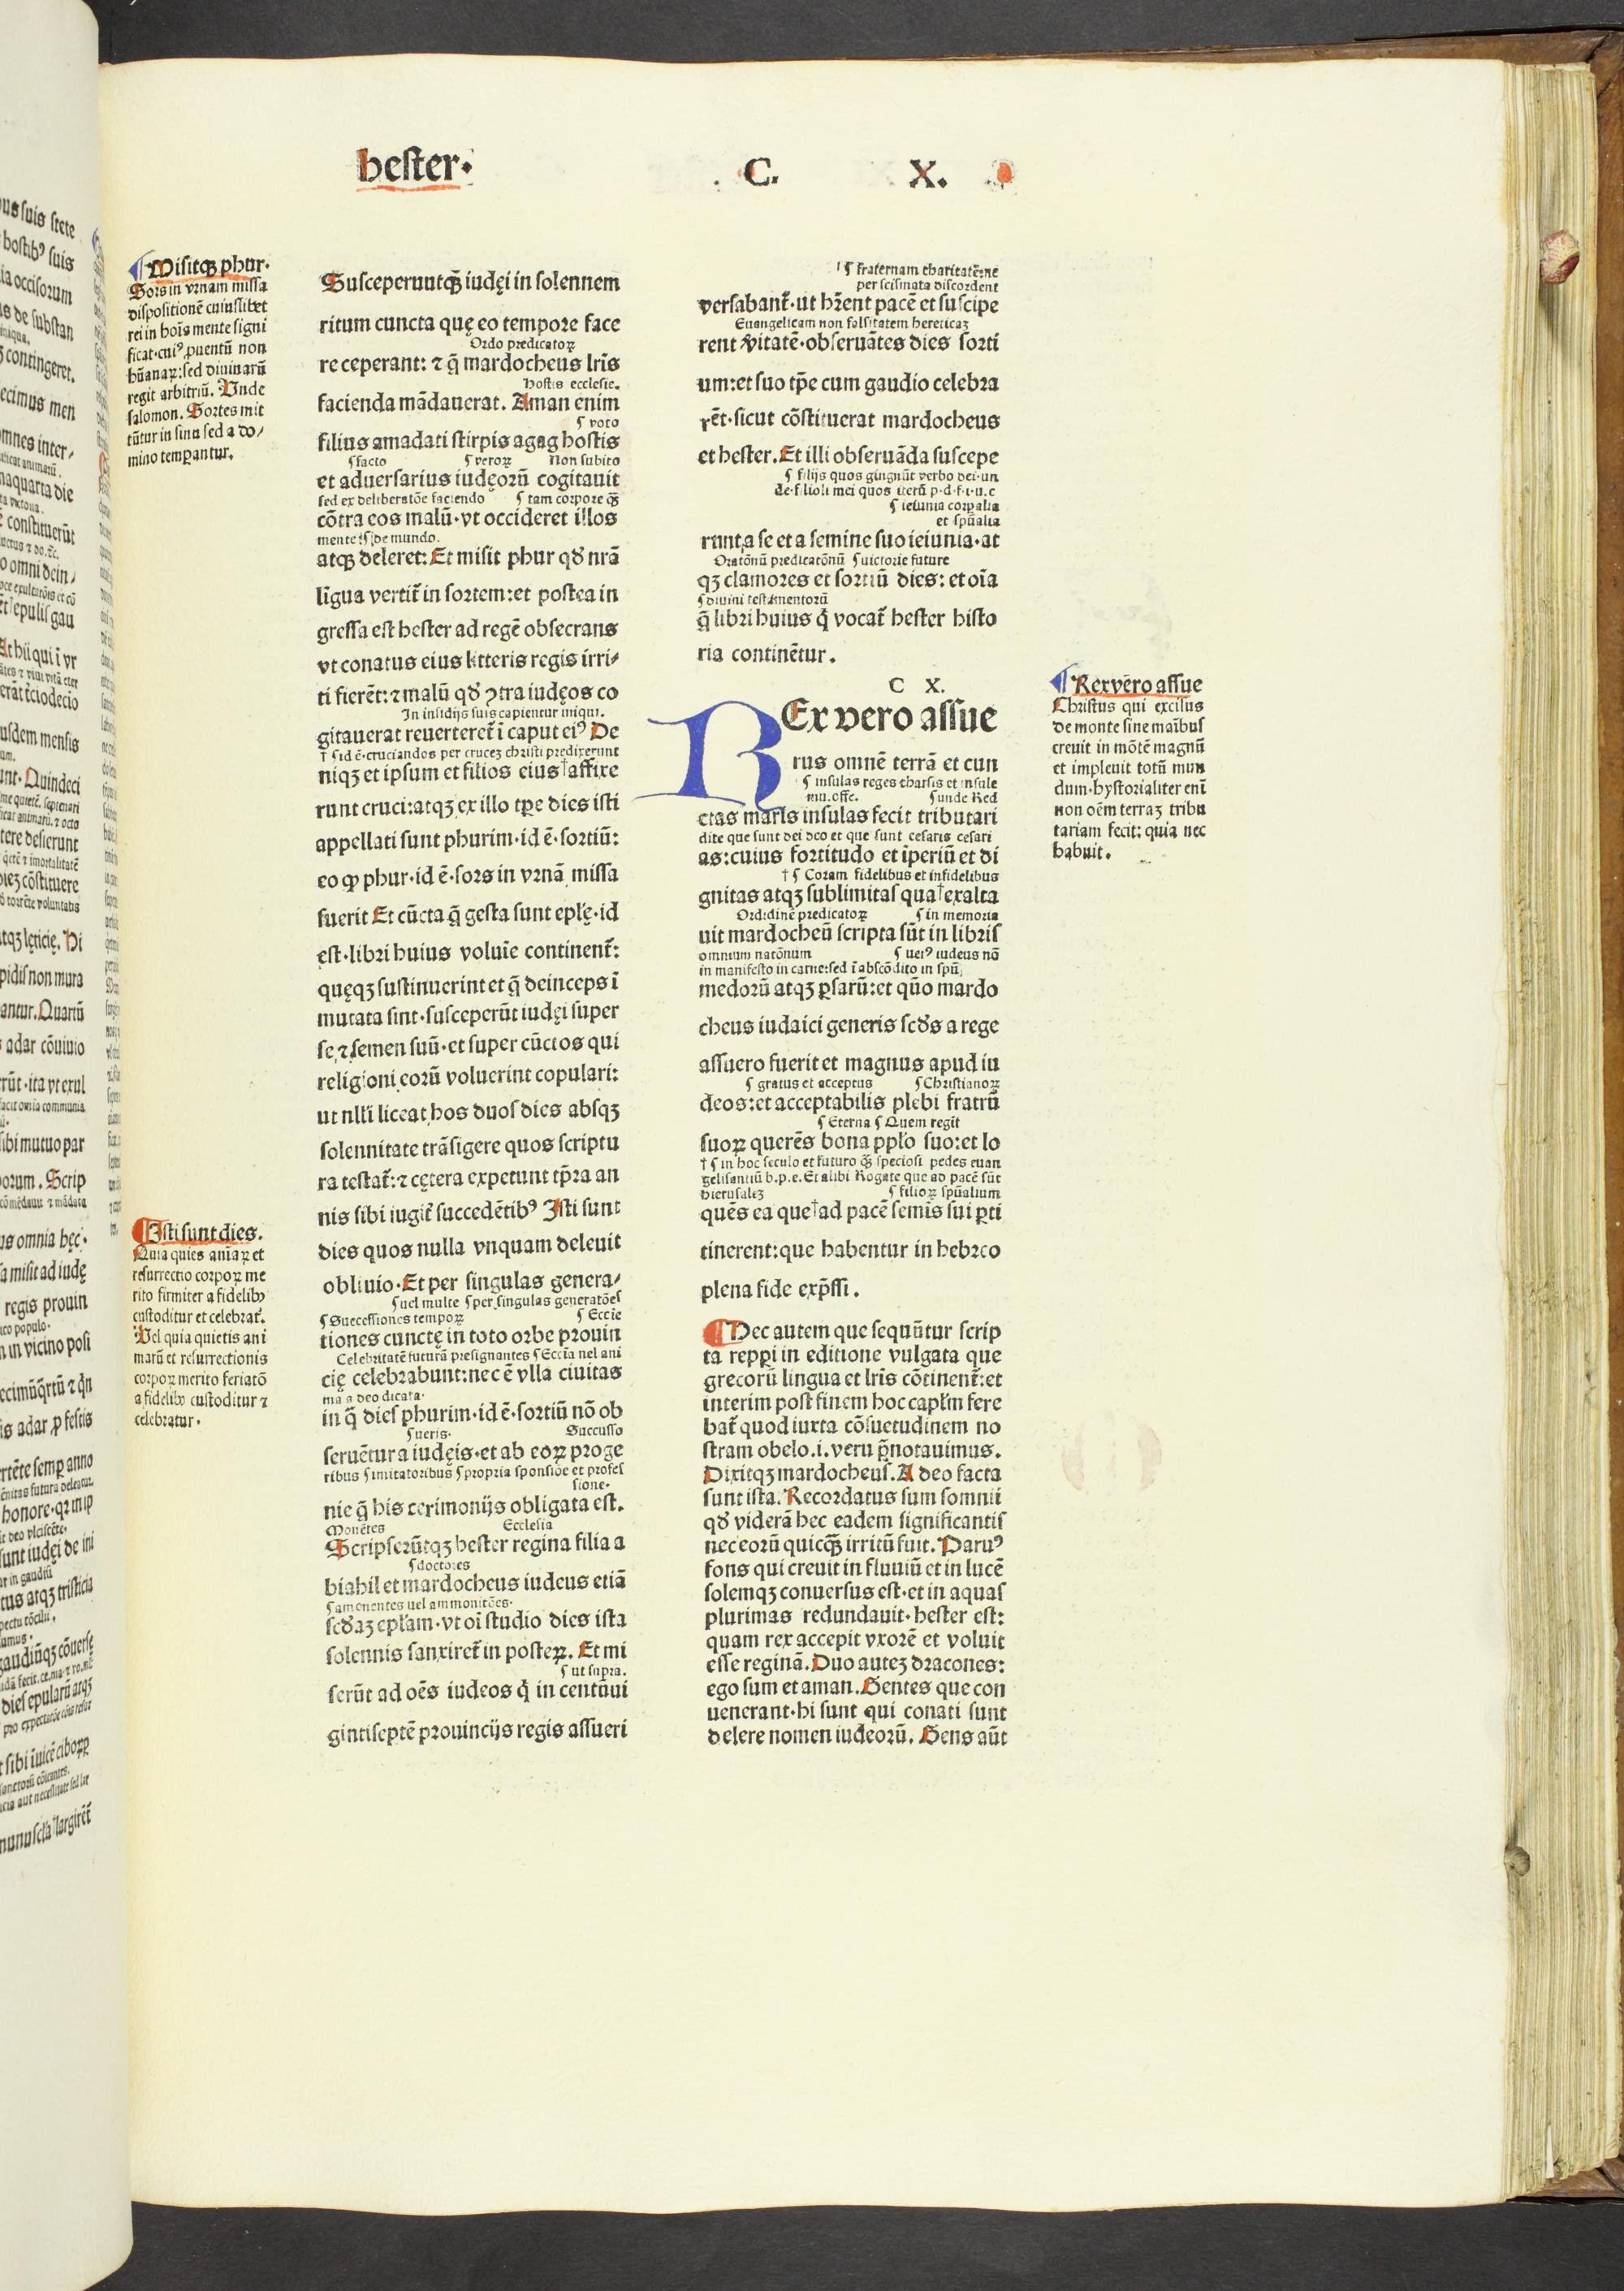 hester.
C. X.
Misitqȝ phur.
Sors in vrnam missa
dispositionē cuiuslibet
rei in hoīs mente signi
ficat·cuiꝰ ꝓuentū non
hūanaꝝ:sed diuinarū
regit arbitriū. Unde
salomon. Sortes mit
tūtur in sinu sed a do/
mino temperantur.
Isti sunt dies.
Quia quies aīaꝝ et
resurrectio corpoꝝ me
rito firmiter a fidelibꝰ
custoditur et celebrat̄.
Uel quia quietis ani
marū et resurrectionis
corpoꝝ merito feriatō
a fidelibꝰ custoditur ⁊
celebratur.
Susceperuntqȝ iudęi in solennem
ritum cuncta quę eo tempore face
Ordo predicatoꝝ
re ceperant: ⁊ q̄ mardocheus lr̄is
hostis ecclesie.
facienda mādauerat. Aman enim
ꞩ voto
filius amadati stirpis agag hostis
ꞩ facto ꞩ veroꝝ Non subito
et aduersarius iudęorū cogitauit
sed ex deliberatōe faciendo ꞩ tam corpore qȝ
cōtra eos malū·vt occideret illos
mente ꞩ de mundo.
atqȝ deleret: Et misit phur qđ nr̄a
līgua vertit̄ in sortem:et postea in
gressa est hester ad regē obsecrans
vt conatus eius litteris regis irri/
ti fierēt:⁊ malū qđ ꝯtra iudęos co
In insidijs suis capientur iniqui.
gitauerat reuerteret̄ ī caput eiꝰ De
† ꞩ id ē·cruciandos per crucez christi predixerunt
niqȝ et ipsum et filios eius†affixe
runt cruci:atqȝ ex illo tp̄e dies isti
appellati sunt phurim·id ē·sortiū:
eo ꝙ phur·id ē·sors in vrnā missa
fuerit Et cūcta q̄ gesta sunt epl̄ę·id
est·libri huius voluīe continent̄:
quęqȝ sustinuerint et q̄ deinceps ī
mutata sint·susceperūt iudęi super
se ⁊ semen suū·et super cūctos qui
religioni eorū voluerint copulari:
ut nlli liceat hos duos dies absqȝ
solennitate trāsigere quos scriptu
ra testat̄:⁊ cętera expetunt tp̄ra an
nis sibi iugit̄ succedētibꝰ Isti sunt
dies quos nulla vnquam deleuit
obliuio·Et per singulas genera/
ꞩ uel multe ꞩ per singulas generatōes
ꞩ Successiones tempoꝝ ꞩ Eccīe
tiones cunctę in toto orbe prouin
Celebritatē futurā presignantes ꞩ Eccīa uel ani
cię celebrabunt:nec ē vlla ciuitas
ma a deo dicata.
in q̄ dies phurim·id ē·sortiū nō ob
ꞩ ueris. Successo
seruētur a iudęis·et ab eoꝝ proge
ribus ꞩ imitatoribus ꞩ propria sponsiōe et profes
sione.
nie q̄ his cerimonijs obligata est.
Monētes Ecclesia
Scripserūtqȝ hester regina filia a
ꞩ doctores
biahil et mardocheus iudeus etiā
ꞩ amonentes uel ammonitōes.
scđaȝ epl̄am·vt oī studio dies ista
solennis sanxiret̄ in posteꝝ. Et mi
ꞩ ut supra.
serūt ad oēs iudeos q̄ in centūui
gintiseptē prouincijs regis assueri
ꞩ fraternam charitatē:ne
per scismata discordent
versabant̄·ut hr̄ent pacē et suscipe
Euangelicam non falsitatem hereticaȝ
rent v̄itatē·obseruātes dies sorti
um:et suo tp̄e cum gaudio celebra
rēt·sicut cōstituerat mardocheus
et hester.Et illi obseruāda suscepe
ꞩ filijs quos gingnūt verbo dei·un
de·filioli mei quos iterū p·d·f·i·u·c
ꞩ ieiunia corpalia
et spūalia
runt,a se et a semine suo ieiunia·at
Oratōnū predicatōnū ꞩ uictorie future
qȝ clamores et sortiū dies: et oīa
ꞩ diuini testamentorū
q̄ libri huius q̄ vocat̄ hester histo
ria continētur.
C X.
REx vero assue
rus omnē terrā et cun
ꞩ insulas reges tharsis et insule
mu.offe. ꞩ unde Red
ctas maris insulas fecit tributari
dite que sunt dei deo et que sunt cesaris cesari
as:cuius fortitudo et īperiū et di
† ꞩ Coram fidelibus et infidelibus
gnitas atqȝ sublimitas qua†exalta
Ordidinē predicatoꝝ ꞩ in memoria
uit mardocheū scripta sūt in libris
omnium natōnum ꞩ uerꝰ iudeus nō
in manifesto in carne:sed ī abscōdito in spū
medorū atqȝ ꝑsarū:et quō mardo
cheus iudaici generis scđs a rege
assuero fuerit et magnus apud iu
ꞩ gratus et acceptus ꞩ Christianoꝝ
deos:et acceptabilis plebi fratrū
ꞩ Eterna ꞩ Quem regit
suoꝝ querēs bona ppl̄o suo:et lo
† ꞩ in hoc seculo et futuro qȝ speciosi pedes euan
gelisantiū b.p.e.Et alibi Rogate que ad pacē sūt
hierusaleȝ ꞩ filioꝝ spūalium
quēs ea que†ad pacē semīs sui ꝑti
tinerent:que habentur in hebreo
plena fide exp̄ssi.
Hec autem que sequūtur scrip
ta repperi in editione vulgata que
grecorū lingua et lr̄is cōtinent̄:et
interim post finem hoc capl̄m fere
bat̄ quod iuxta cōsuetudinem no
stram obelo.i.veru p̄notauimus.
Dixitqȝ mardocheus. A deo facta
sunt ista. Recordatus sum somnii
qđ viderā hec eadem significantis
nec eorū quicqȝ irritū fuit. Paruꝰ
fons qui creuit in fluuiū et in lucē
solemqȝ conuersus est·et in aquas
plurimas redundauit·hester est:
quam rex accepit vxorē et voluit
esse reginā. Duo auteȝ dracones:
ego sum et aman. Gentes que con
uenerant·hi sunt qui conati sunt
delere nomen iudeorū. Gens aūt
Rex vero assue
Christus qui excisus
de monte sine maībus
creuit in mōtē magnū
et impleuit totū mun
dum·hystorialiter enī
non oēm terraȝ tribu
tariam fecit: quia nec
habuit.